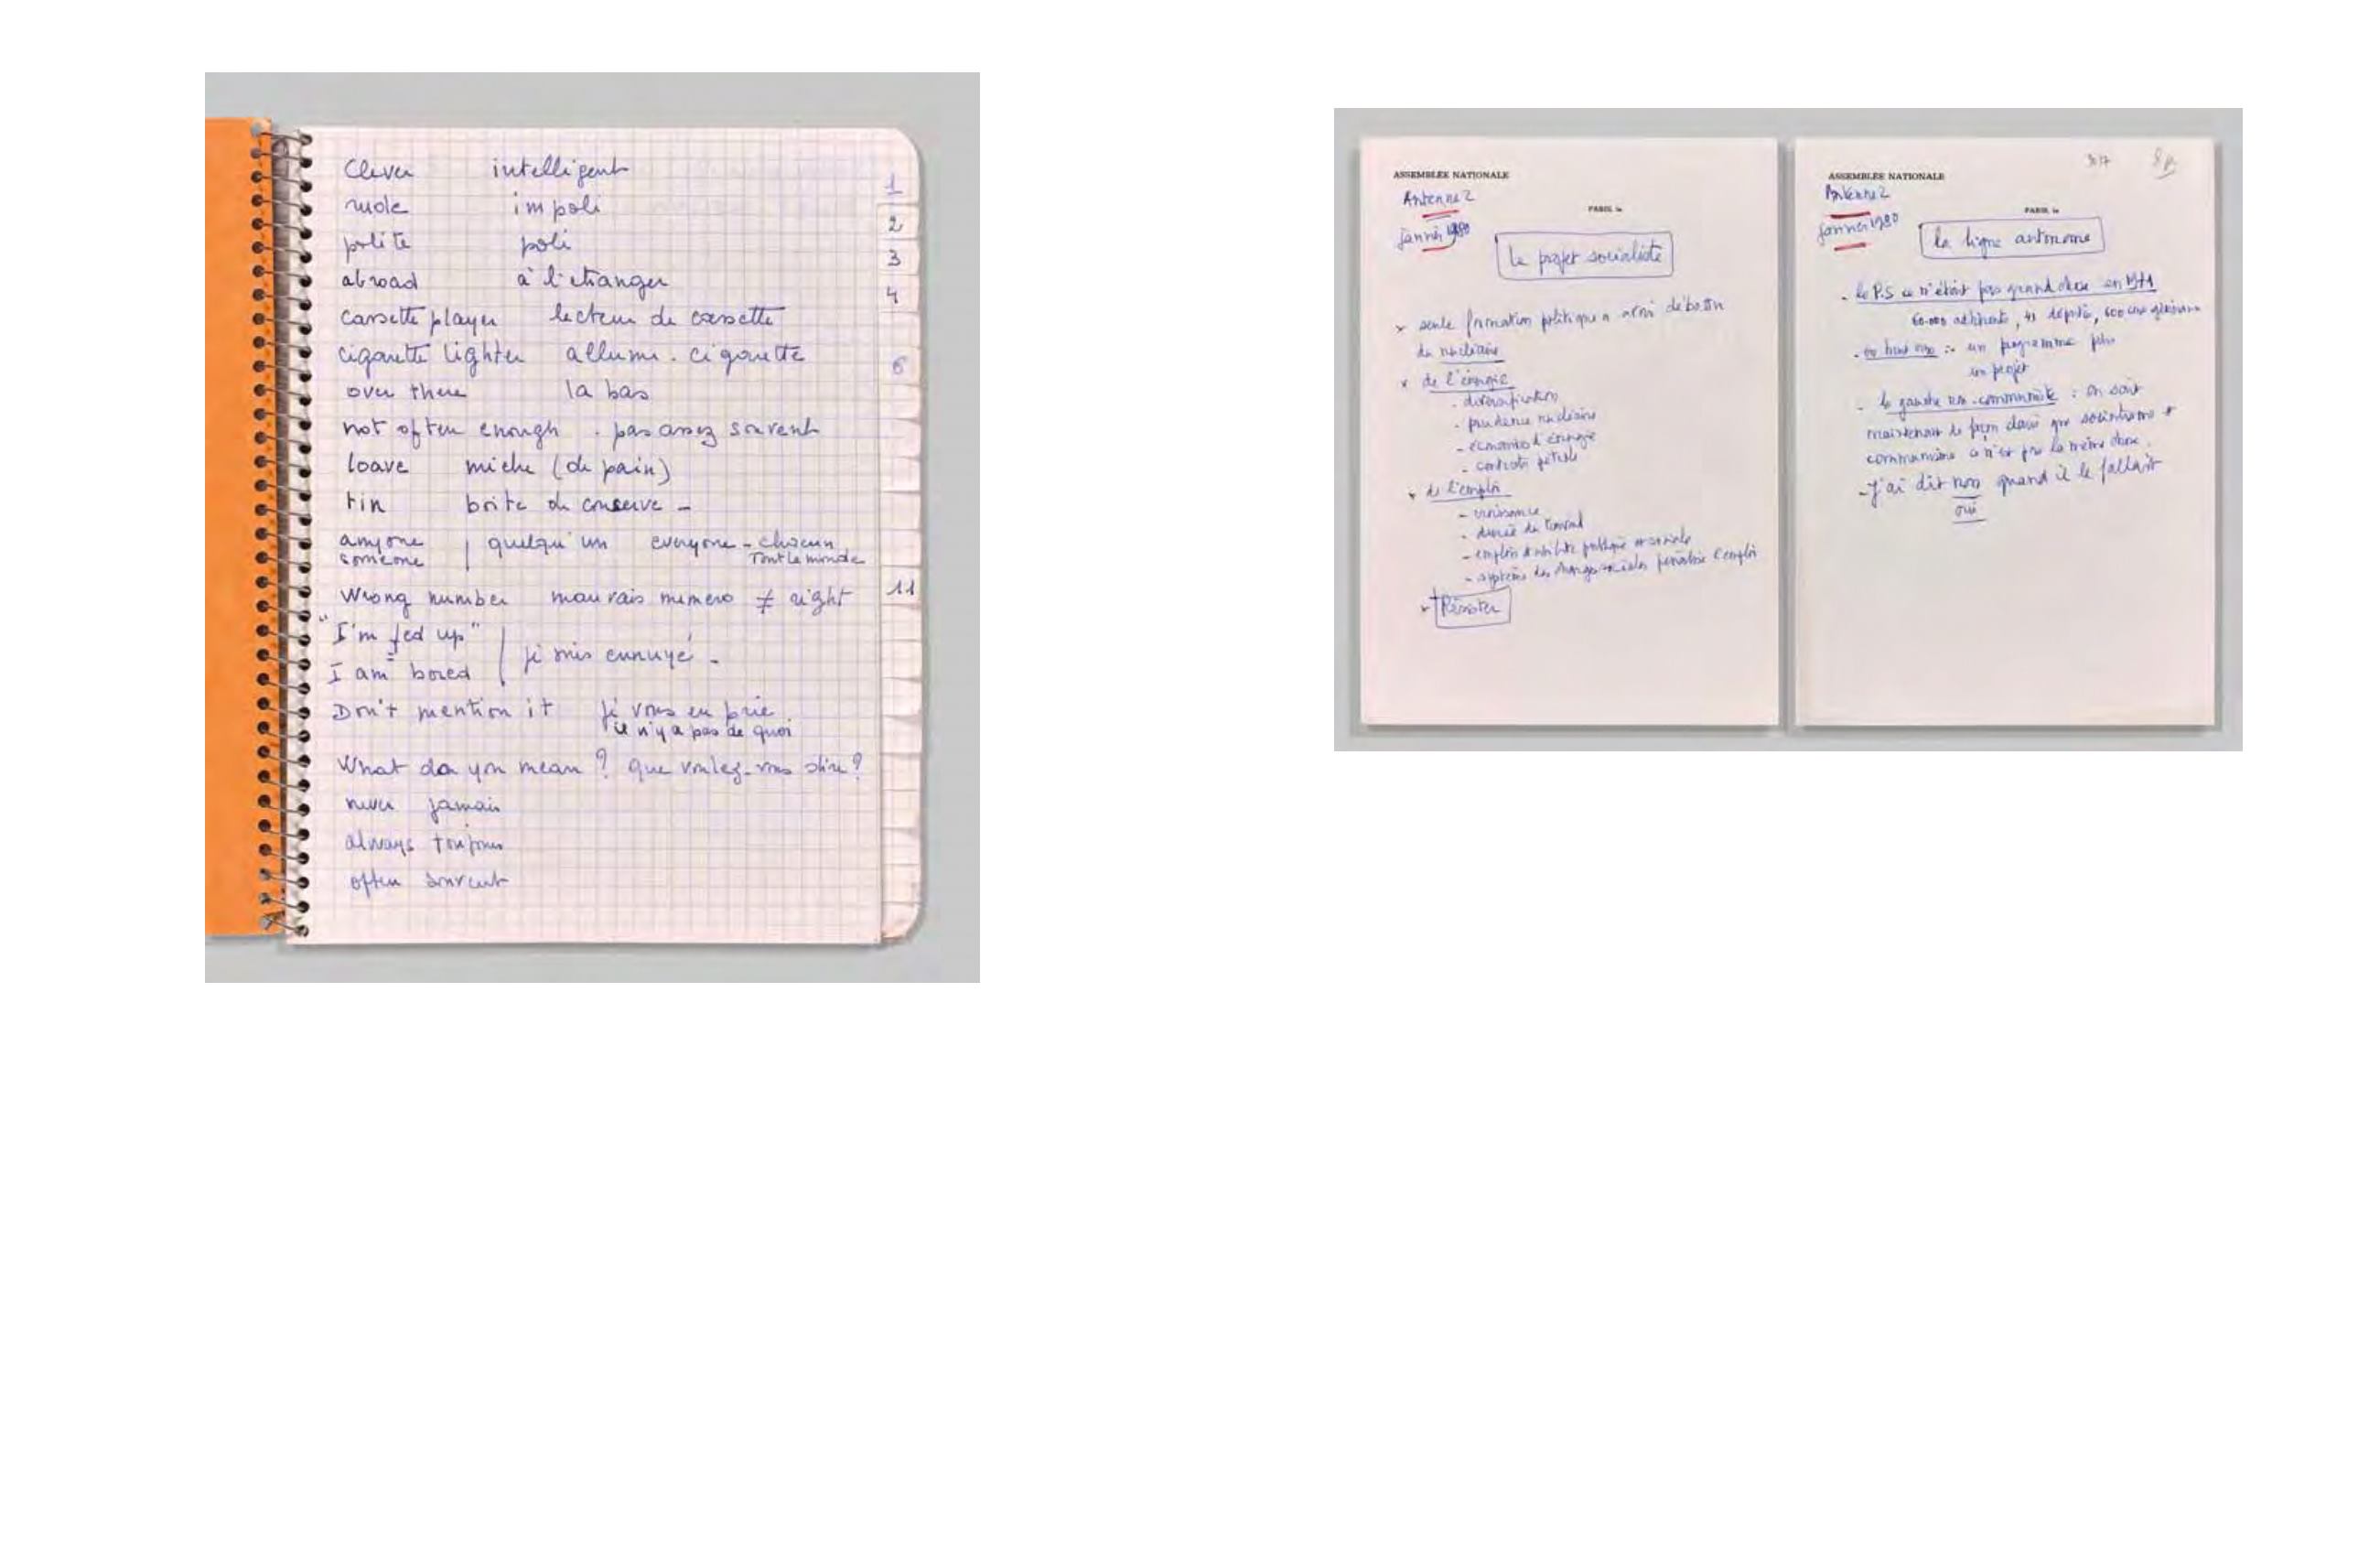 Clever intelligent
rude impoli
polite poli
abroad à l'étranger
cassette player lecteur de cassette
cigarette lighter allume-cigarette
over there la bas
not often enough . pas assez souvent
loave miche (de pain)
tin boite de conserve -
anyone | quelqu'un everyone - chacun
someone Tout le monde
Wrong number mauvais numero ≠ right
"I'm fed up"
I am bored je suis ennuyé -
Don't mention it je vous en prie
il n'y a pas de quoi
What do you mean ? que voulez-vous dire ?
never jamais
always toujours
often souvent
1
2
3
4
6
11
ASSEMBLÉE NATIONALE
Antenne 2
PARIS, le
janvier 1980
Le projet socialiste
x seule formation politique
du nucléaire
x de l'énergie
- diversification
- prudence nucléaire
- économies d'énergie
- contrats pétrole
x de l'emploi
- croissance
- durée du travail
- emplois d'utilité publique et sociale
- système des charges sociales pénalise l'emploi
Résister
317
ASSEMBLÉE NATIONALE
Antenne 2
PARIS, le
janvier 1980
la ligne autonome
- le P.S ce n'était pas grand chose en 1971
60.000 adhérents,
- un programme puis
un projet
- la gauche non-communiste : on sait
maintenant de façon claire que socialisme et
communisme ce n'est pas la même chose.
- J'ai dit non quand il le fallait
oui